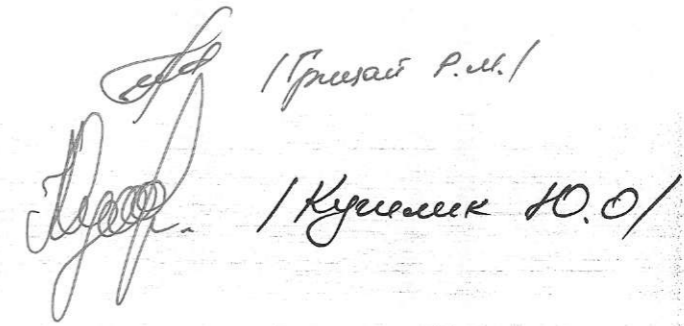 /Грицай Р.М./
/Кушлик Ю.О/